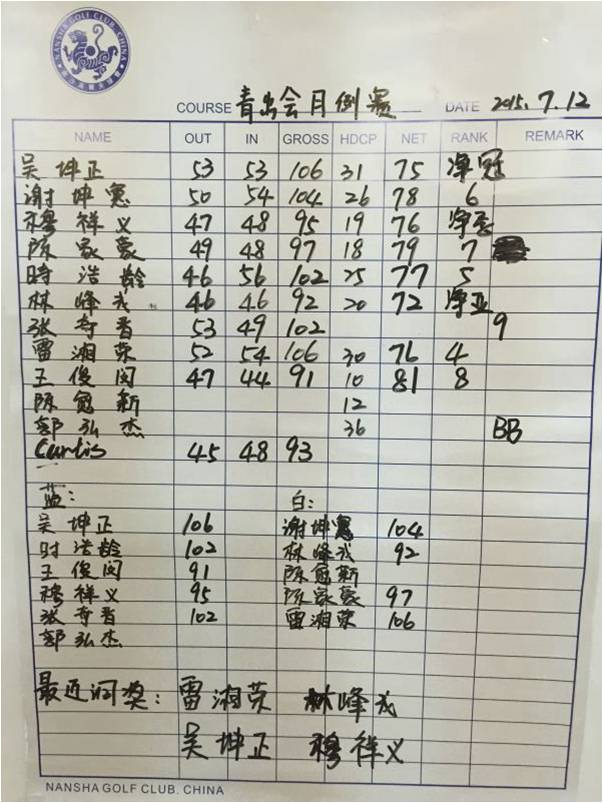 NANSHA GOLF CLUB, CHINA
COURSE 青出会月例赛 DATE 2015.7.12
NAME OUT IN GROSS HDCP NET RANK REMARK
吴坤正 53 53 106 31 75 净冠
谢坤宪 50 54 104 26 78 6
穆祥义 47 48 95 19 76 净季
陈家豪 49 48 97 18 79 7
时浩龄 46 56 102 25 77 5
林峰戎 46 46 92 20 72 净亚
张奇晋 53 49 102 9
雷湘荣 52 54 106 30 76 4
王俊闵 47 44 91 10 81 8
陈冠新 12
郭弘杰 36 BB
Curtis 45 48 93
蓝: 白:
吴坤正 106 谢坤宪 104
时浩龄 102 林峰戎 92
王俊闵 91 陈冠新
穆祥义 95 陈家豪 97
张奇晋 102 雷湘荣 106
郭弘杰
最近洞奖: 雷湘荣 林峰戎
吴坤正 穆祥义
NANSHA GOLF CLUB. CHINA